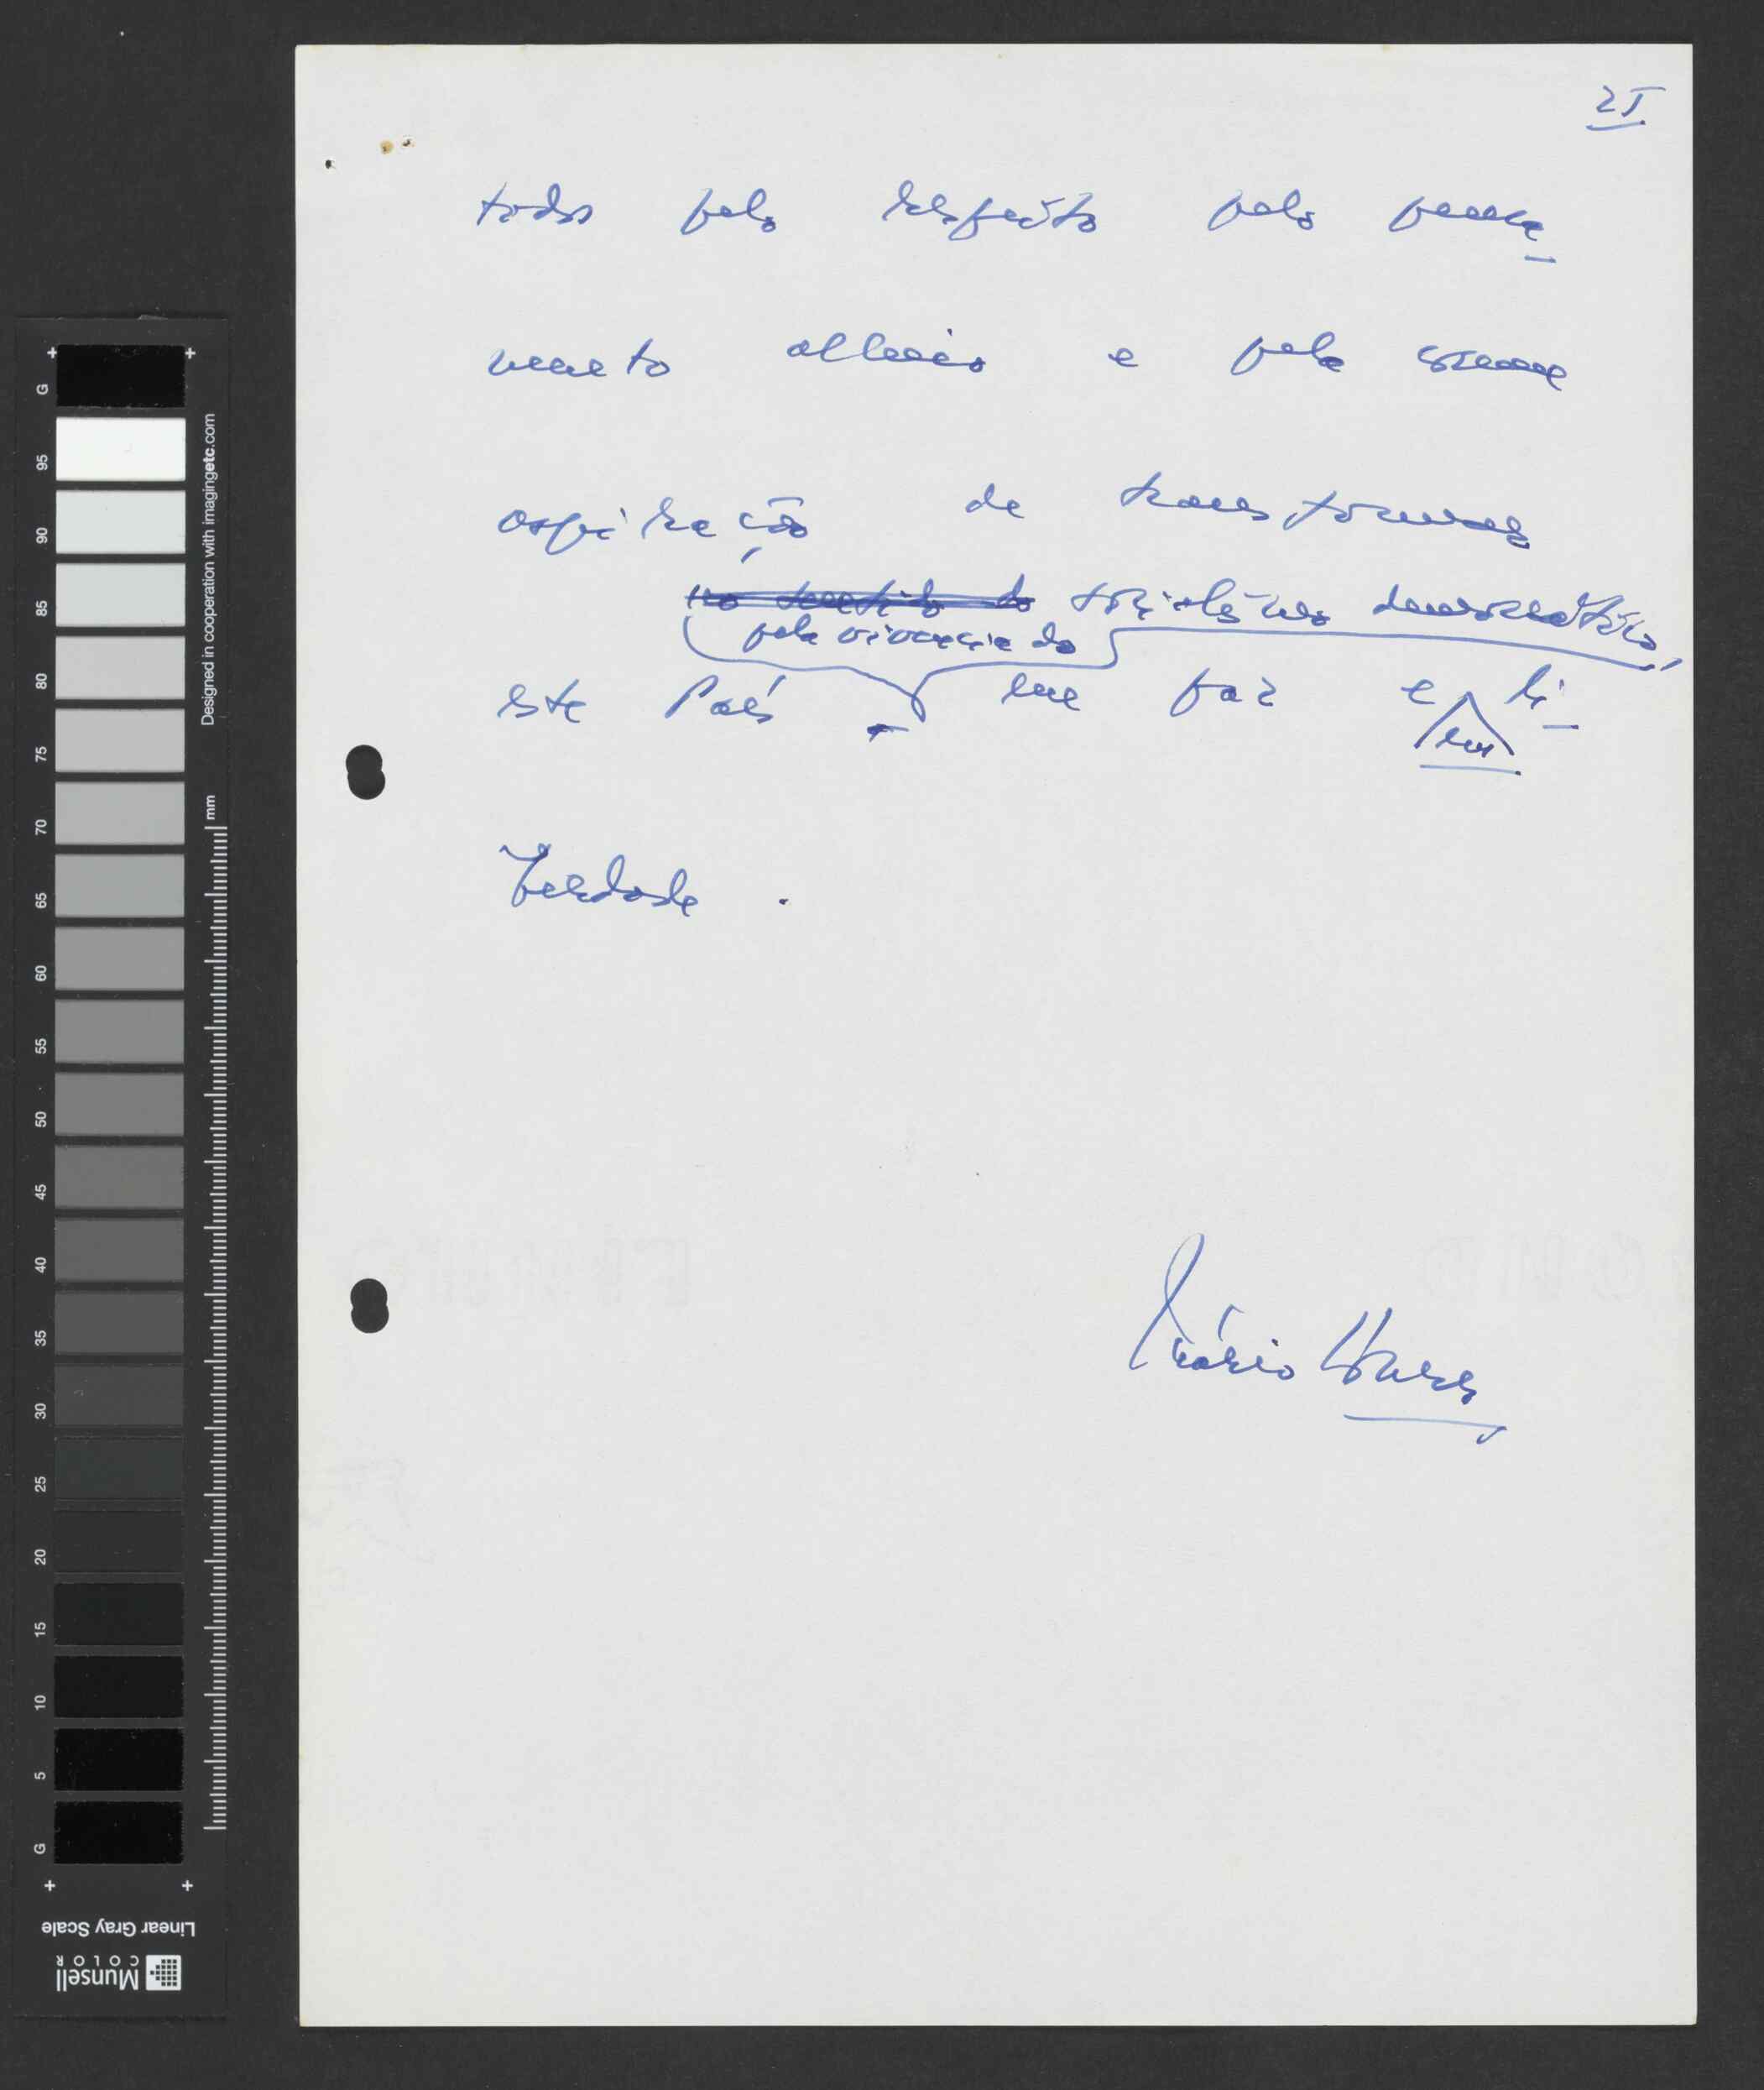 21
todos pelo respeito pelo pensa_
mento alheio e pela comum
aspiração de transformar
no sentido do socialismo democrático,
pela vivência do
este País - em paz e li_
em
berdade.
Mário Soares
G
95
90
85
80
75
70
65
60
55
50
45
40
35
30
25
20
15
10
5
G
Designed in cooperation with imagingetc.com
mm
Linear Gray Scale
Munsell
COLOR